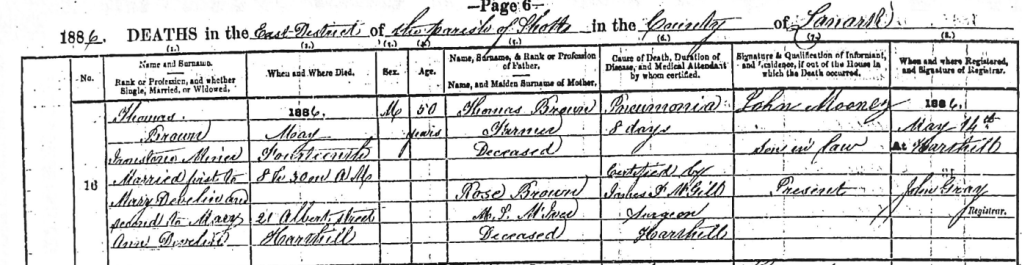 —Page 6—
1886. DEATHS in the East District of the parish of Shotts in the County of Lanark
(1.) (2.) (3.) (4.) (5.) (6.) (7.) (8.)
No.
Name and Surname.
Rank or Profession, and whether Single, Married, or Widowed.
When and Where Died.
Sex.
Age.
Name, Surname, & Rank or Profession of Father.
Name, and Maiden Surname of Mother.
Cause of Death, Duration of Disease, and Medical Attendant by whom certified.
Signature & Qualification of Informant, and Residence, if out of the House in which the Death occurred.
When and where Registered, and Signature of Registrar.
16
Thomas
Brown
Ironstone Miner
Married first to
Mary Develin and
second to Mary
Ann Develin
1886.
May
Fourteenth
8 h 30 m A M
21 Albert street
Harthill
M
50
years
Thomas Brown
Farmer
Deceased
Rose Brown
M. S. McIvee
Deceased
Pneumonia
8 days
Certified by
James P. McGill
Surgeon
Harthill
John Mooney
Son in law
Present
1886.
May 14th
At Harthill
John Gray
Registrar.